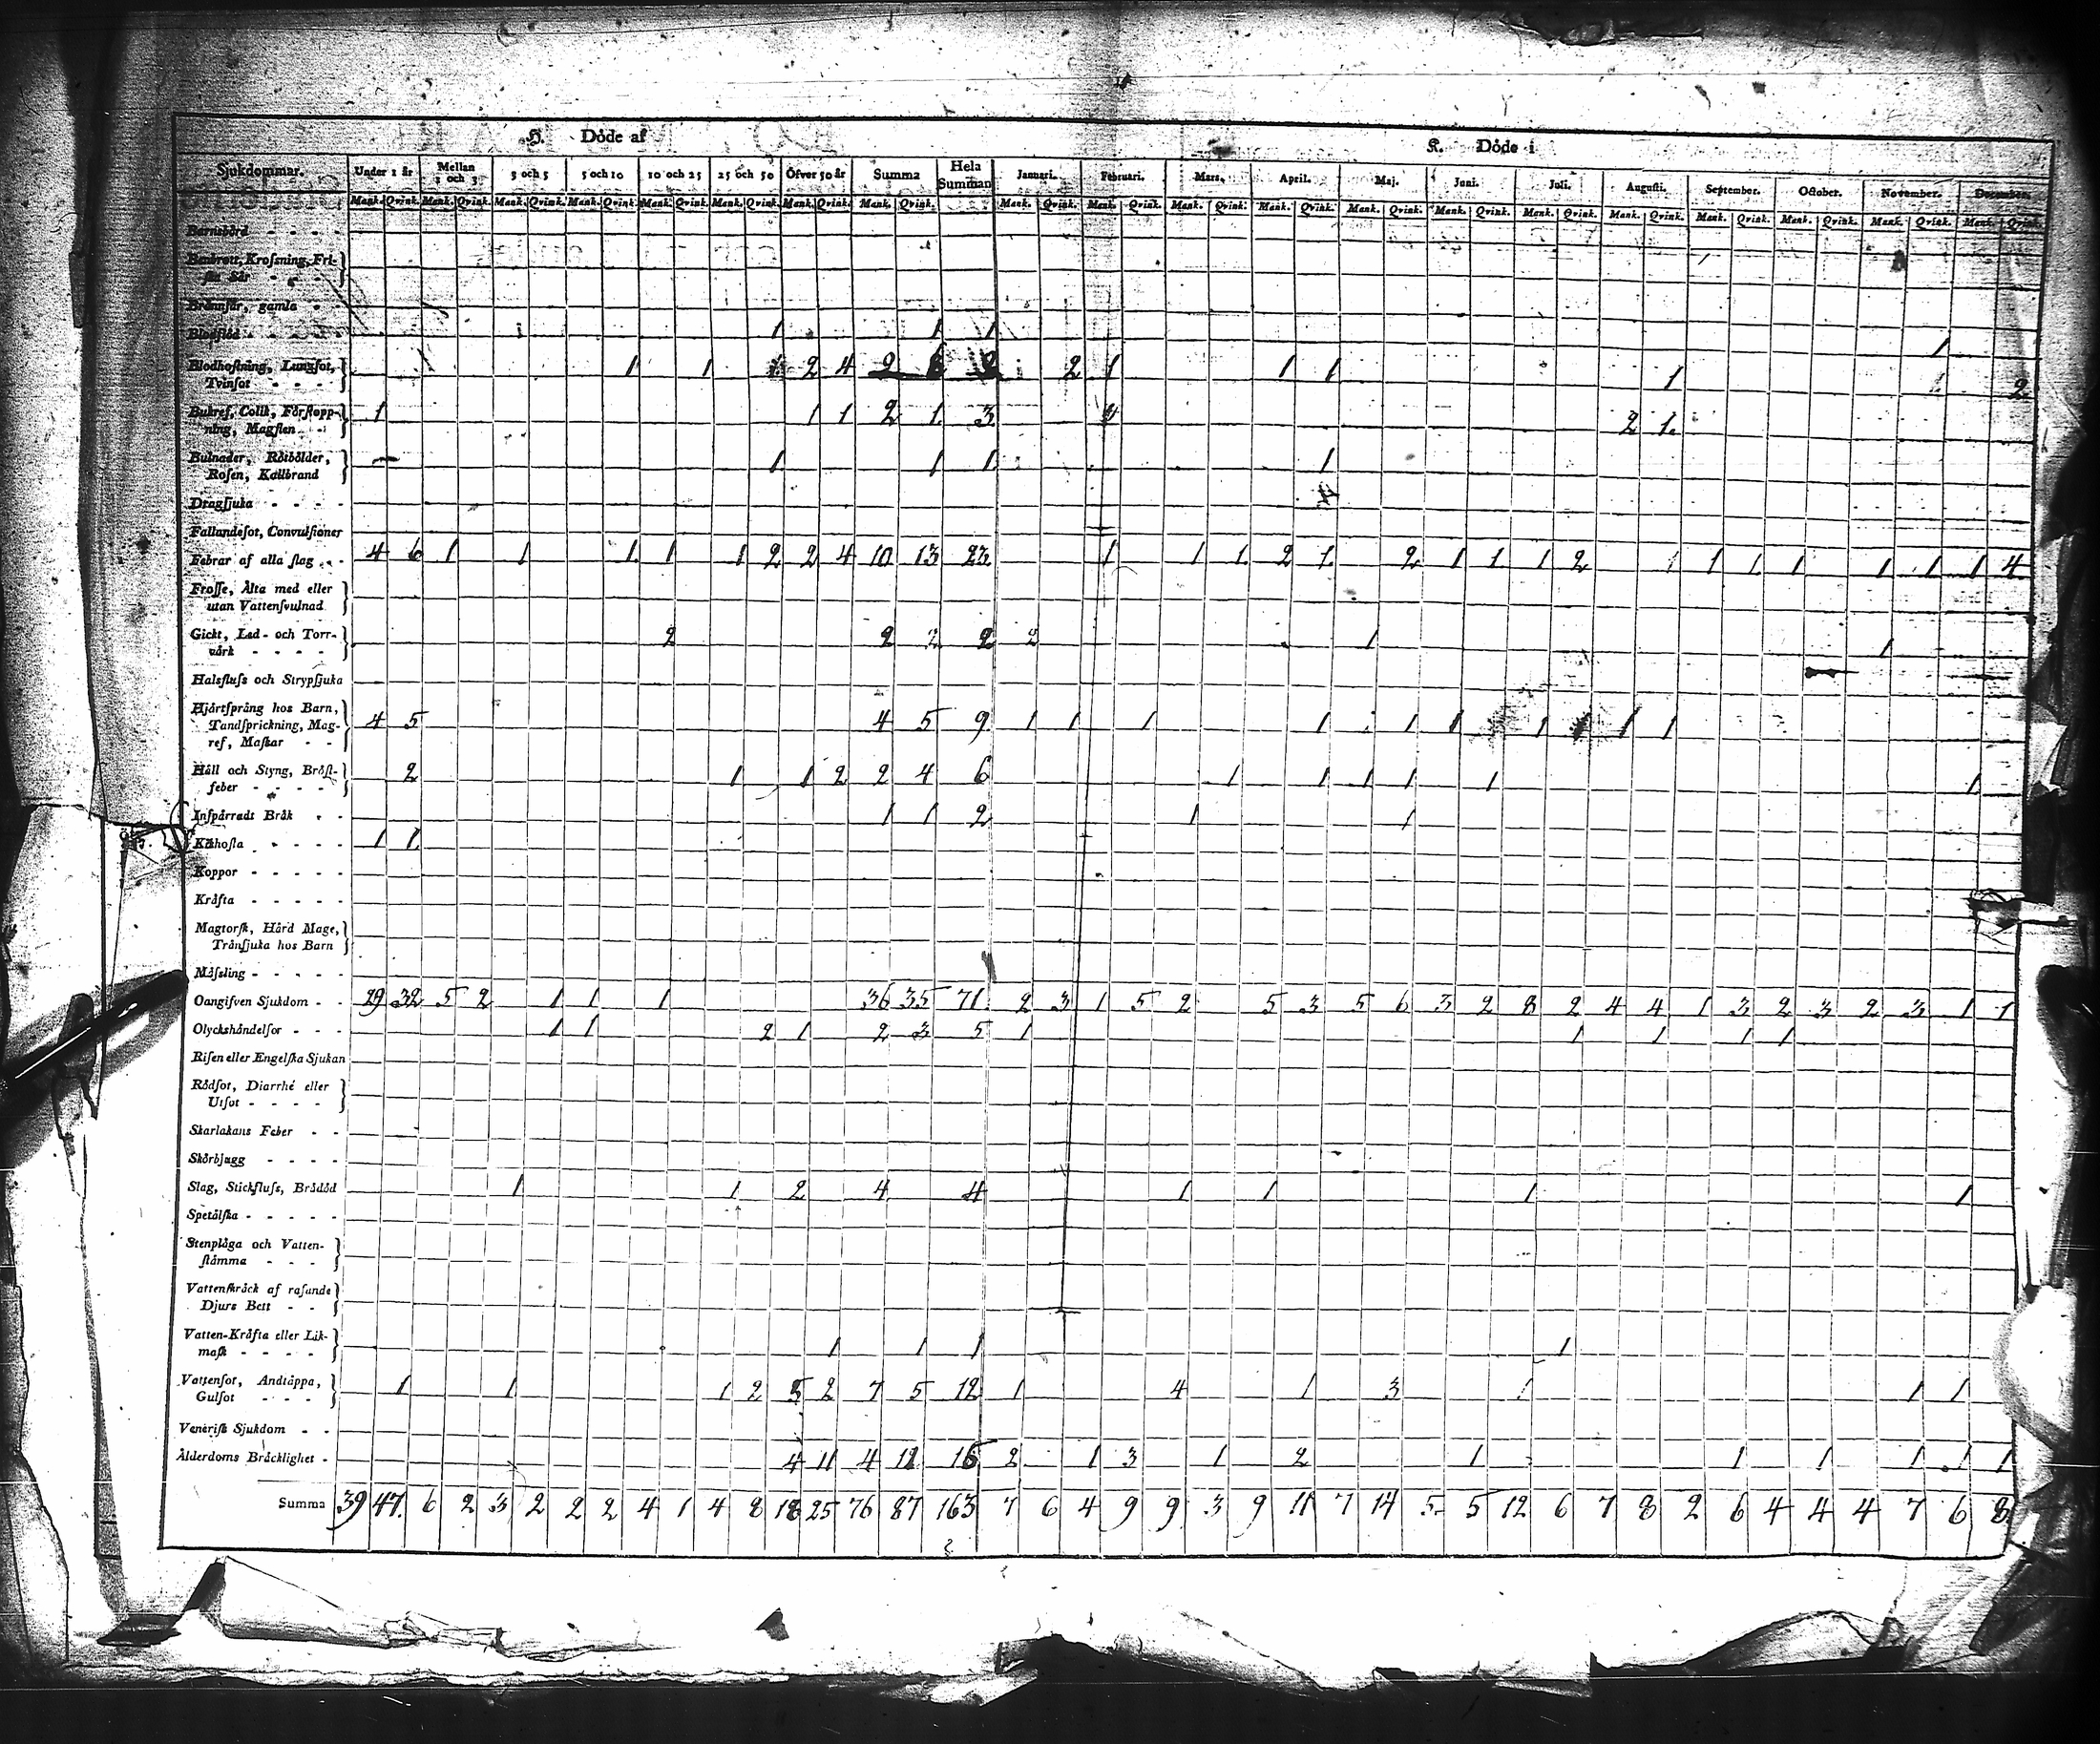 H. Döde af
K. Döde i
Sjukdommar. Under 1 år Mellan 1 och 3 3 och 5 5 och 10 10 och 25 25 och 50 Öfver 50 år Summa Hela Summan Januari. Februari. Mars. April. Maj. Juni. Juli. Augusti. September. October. November. December.
Mank. Qvink. Mank. Qvink. Mank. Qvink. Mank. Qvink. Mank. Qvink. Mank. Qvink. Mank. Qvink. Mank. Qvink. Mank. Qvink. Mank. Qvink. Mank. Qvink. Mank. Qvink. Mank. Qvink. Mank. Qvink. Mank. Qvink. Mank. Qvink. Mank. Qvink. Mank. Qvink. Mank. Qvink. Mank. Qvink.
Barnsbörd - - - -
Benbrott, Krosning, Fri-
ska Sår - - -
Brännsår, gamla -
Blodflöd - - - - 1 1 1 1
Blodhostning, Lungsot,
Tvinsot - - - - 1 1 2 4 2 2 1 1 1 1 2
Bukref, Colik, Förstopp-
ning, Magsten - - 1 1 1 2 1 3 2 1
Bulnader, Rötbölder,
Rosen, Kallbrand 1 1 1 1
Dragsjuka - - - -
Fallandesot, Convulsioner
Febrar af alla slag - - 4 6 1 1 1 1 1 2 2 4 10 13 23 1 1 1 2 1 2 1 1 1 2 1 1 1 1 1 1 1 4
Frosse, Älta med eller
utan Vattensvulnad
Gickt, Led- och Torr-
värk - - - - 2 2 2 2 1 1
Halsfluss och Strypsjuka
Hjärtsprång hos Barn,
Tandsprickning, Mag-
ref, Maskar - - 4 5 4 5 9 1 1 1 1 1 1 1 1 1
Håll och Styng, Bröst-
feber - - - - 2 1 1 2 2 4 6 1 1 1 1 1 1
Inspärradt Bråk - - 1 1 2 1 1
Kikhosta - - - - 1 1
Koppor - - - - -
Kräfta - - - - -
Magtorsk, Hård Mage,
Trånsjuka hos Barn
Mässling - - - - -
Oangifven Sjukdom - - 29 32 5 2 1 1 1 36 35 71 2 3 1 5 2 5 3 5 6 3 2 8 2 4 4 1 3 2 3 2 3 1 1
Olyckshändelsor - - - 1 1 2 1 2 3 5 1 1 1 1 1
Risen eller Engelska Sjukan
Rödsot, Diarrhé eller
Utsot - - - -
Skarlakans Feber - -
Skörbjugg - - - -
Slag, Stickfluss, Brådöd 1 1 2 4 4 1 1 1 1
Spetälska - - - - -
Stenplåga och Vatten-
stämma - - -
Vattenskräck af rasande
Djurs Bett - -
Vatten-Kräfta eller Lik-
mask - - - - 1 1 1 1
Vattensot, Andtäppa,
Gulsot - - - 1 1 1 2 5 2 7 5 12 1 4 1 3 1 1 1
Venerisk Sjukdom - -
Ålderdoms Bräcklighet - 4 11 4 11 15 2 1 3 1 2 1 1 1 1 1 1
Summa 39 47. 6 2 3 2 2 2 4 1 4 8 18 25 76 87 163 7 6 4 9 9 3 9 11 7 14 5 5 12 6 7 8 2 6 4 4 4 7 6 8